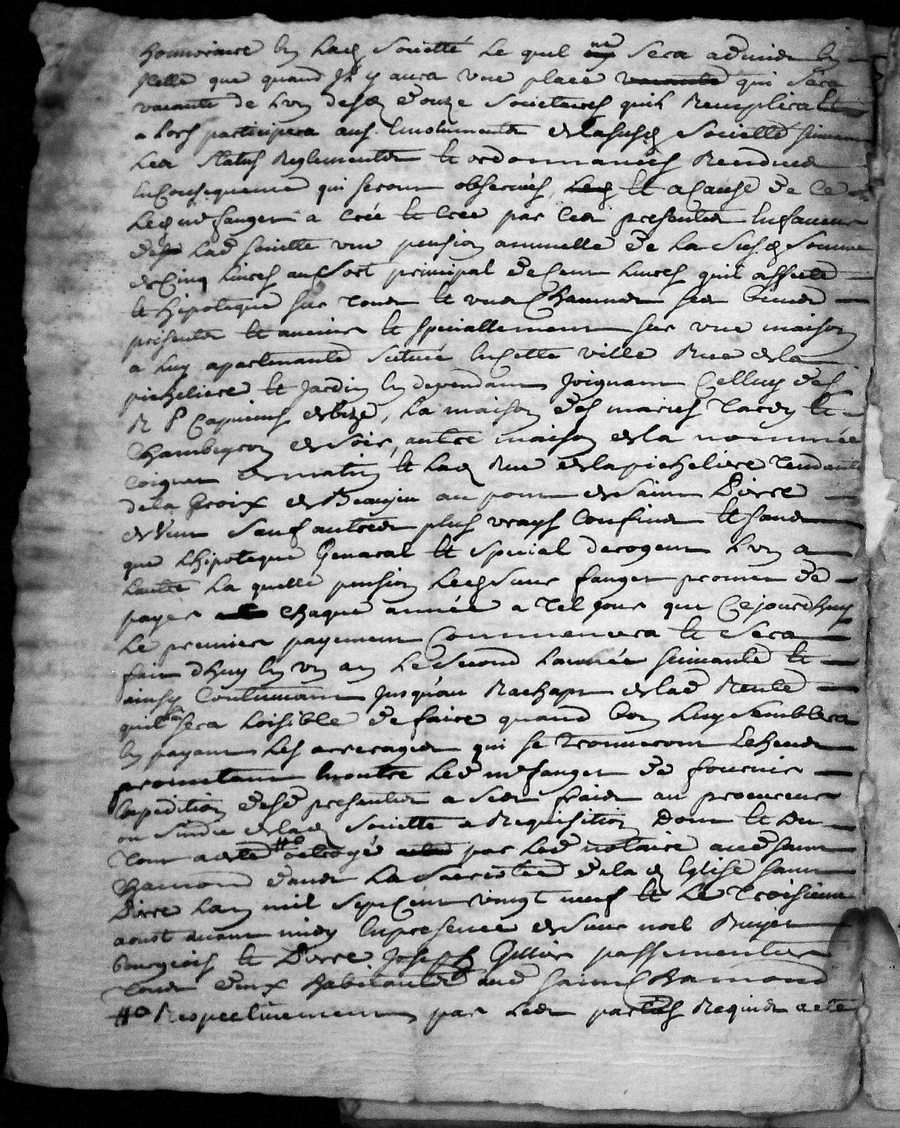 honnoraire en lad Societté le quel ne Sera admis en
jcelle que quand Jl y aura une place qui Sera
vacante de l'un desd douze Societeres quil Remplacera
a lors participera aux Emolumentes de la susd Societté suivant
les Statuts Reglementes et ordonnances Rendues
En Consequence qui seront observés et a Cause de ce
led mr fanget a Créé et Crée par ces presentes En faveur
de lad Societté une pension annuelle de la Susd Somme
de Cinq Livres au Sort principal de Cent Livres quil assure
et hipoteque sur tous et uns Chacuns ses biens
presents et avenirs et speciallement sur une maison
a luy apartenante Scituée En Cette ville Rue de la
picheliere et Jardin En dependant Joignant Celluy des
R P Capucins de bize, la maison des maries tardy et
Chambeyron de soir, autre maison de la nommée
Coignet de matin et lad Rue de la picheliere tendante
de la Croix de Beaujeu au pont de Saint Pierre
de vent Sauf autres plus vrays Confins et sans
que l'hipoteque General et Special derogent l'un a
l'autre la quelle pension led sieur fanget promet de
payer chaque année a tel jour que Cejourdhuy
le premier payement Commencera et Sera
fait d'huy En un an le Second L'année suivante et
ainsy Continuant Jusqu'au Rachapt de lad Rente
quil sera loisible de faire quand bon luy Semblera
En payant les arrerages qui se trouveront Echeus
promettant En outre led mr fanget de fournir
Expedition desd presentes a ses frais au procureur
ou Sindic de lad Societté a Requisition Dont et du
tout acte #o octroyé par led notaire aud saint
Chamond dans la Sacristie de lad Eglise saint
Pierre l'an mil Sept Cent vingt neuf et le troisieme
aoust avant midy En presence de Sieur noel Bruyet
Bourgeois et Pierre Joseph Gillier passementier
tous deux habitants aud Saint Chamond
#o Respectivement par les parties Requis acte